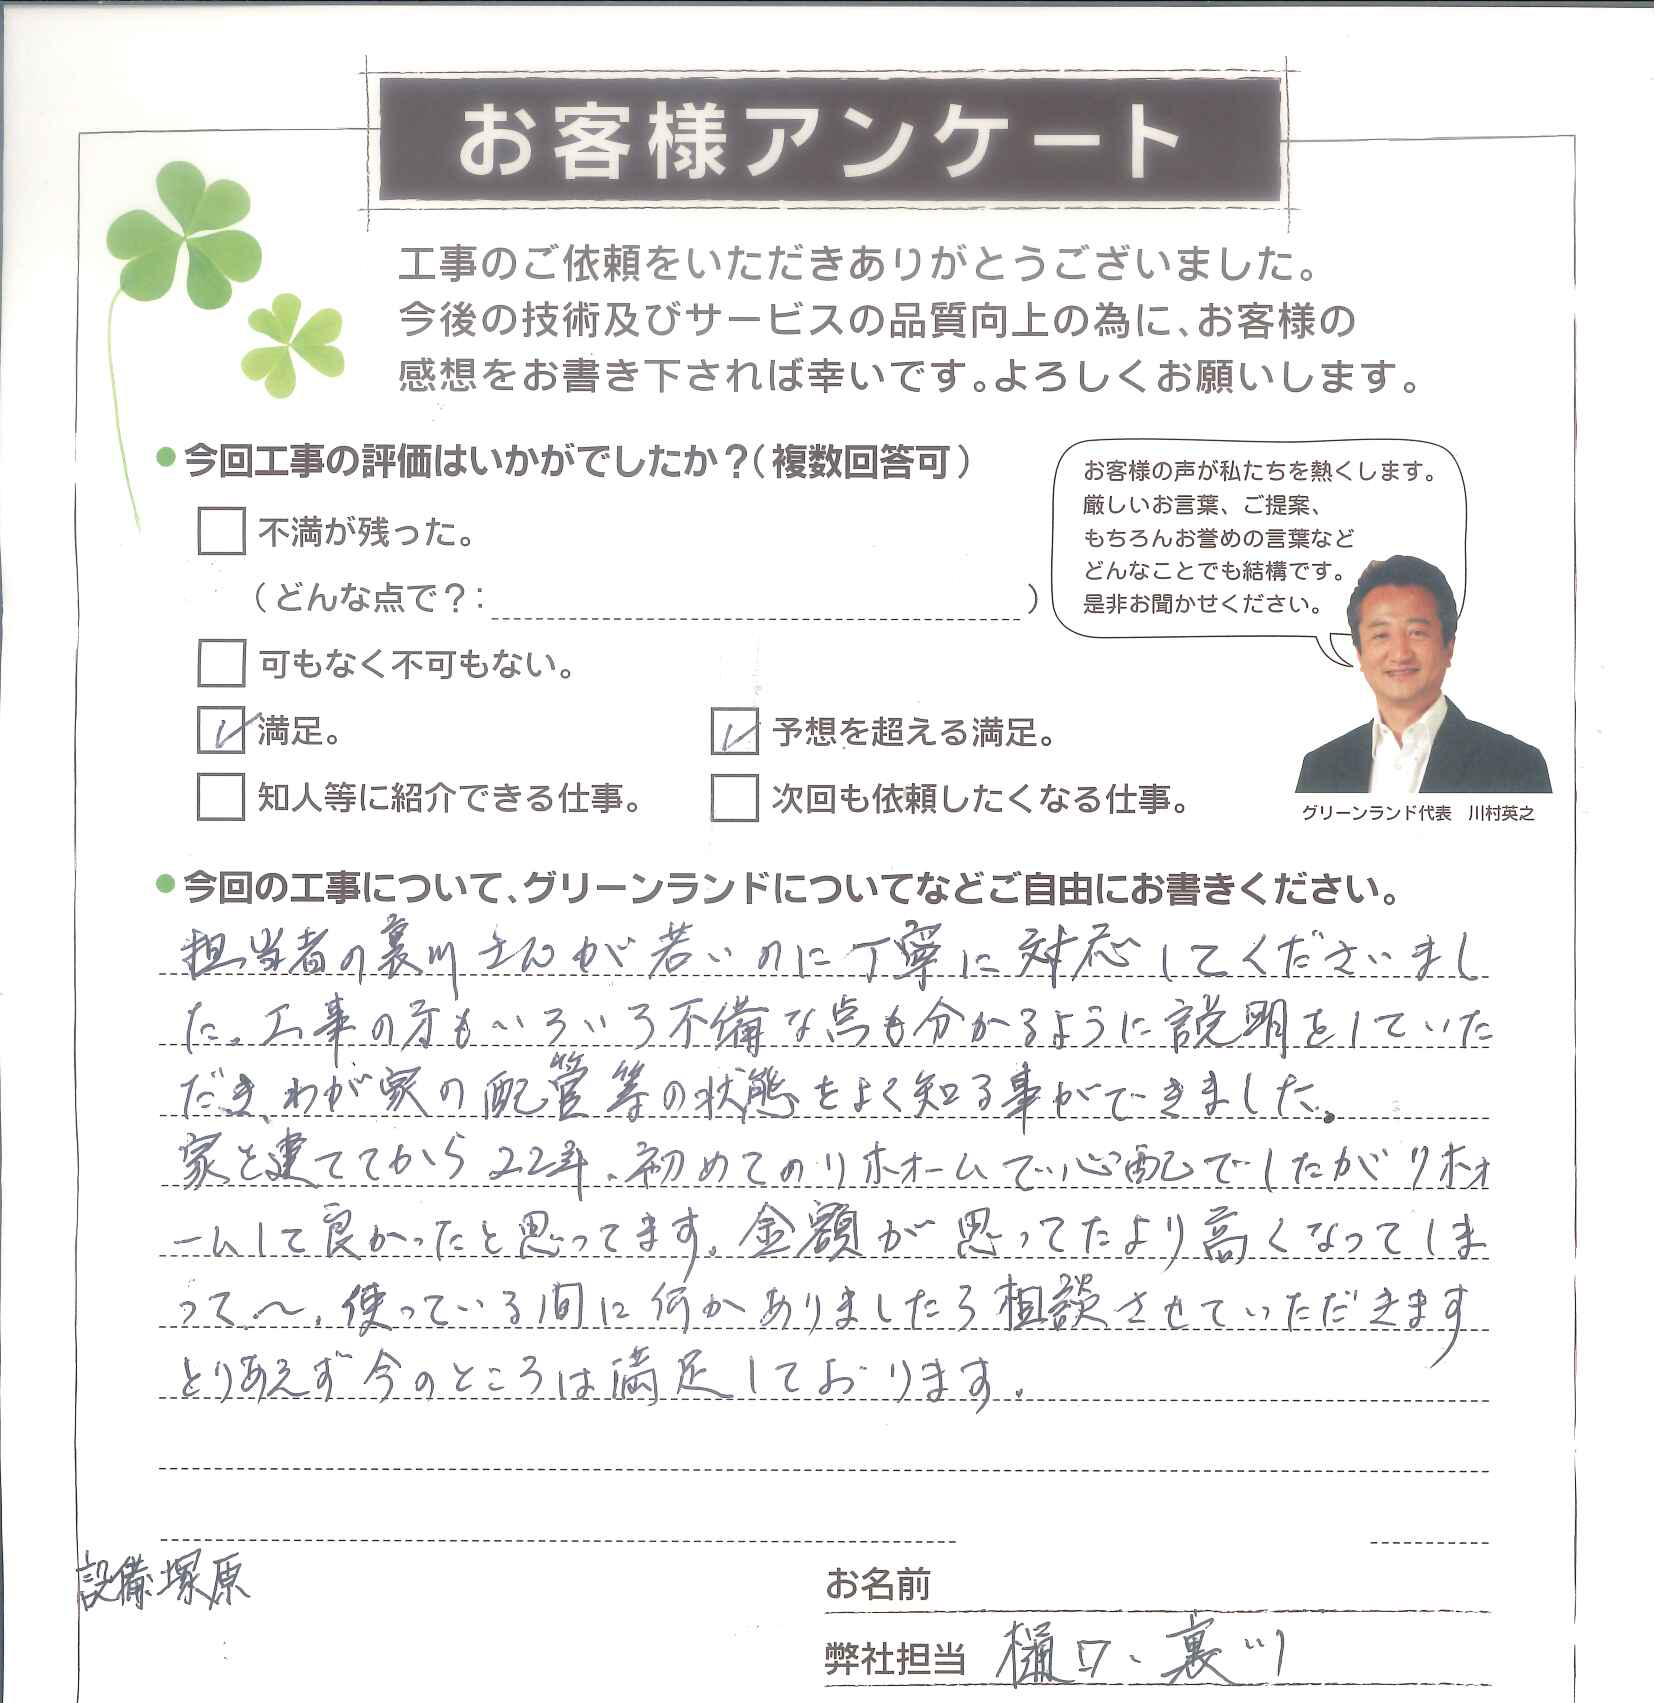 お客様アンケート
工事のご依頼をいただきありがとうございました。
今後の技術及びサービスの品質向上の為に、お客様の
感想をお書き下されば幸いです。よろしくお願いします。
今回工事の評価はいかがでしたか？(複数回答可)
不満が残った。
(どんな点で？: )
可もなく不可もない。
満足。
予想を超える満足。
知人等に紹介できる仕事。
次回も依頼したくなる仕事。
お客様の声が私たちを熱くします。
厳しいお言葉、ご提案、
もちろんお誉めの言葉など
どんなことでも結構です。
是非お聞かせください。
グリーンランド代表　川村英之
今回の工事について、グリーンランドについてなどご自由にお書きください。
担当者の裏川さんが若いのに丁寧に対応してくださいまし
た。工事の方もいろいろ不備な点も分かるように説明をしていた
だき、わが家の配管等の状態をよく知る事ができました。
家を建ててから22年、初めてのリホォームで心配でしたがリホォ
ームして良かったと思ってます。金額が思ってたより高くなってしま
って〜、使っている間に何かありましたら相談させていただきます
とりあえず今のところは満足しております。
設備塚原
お名前
弊社担当 樋口、裏川